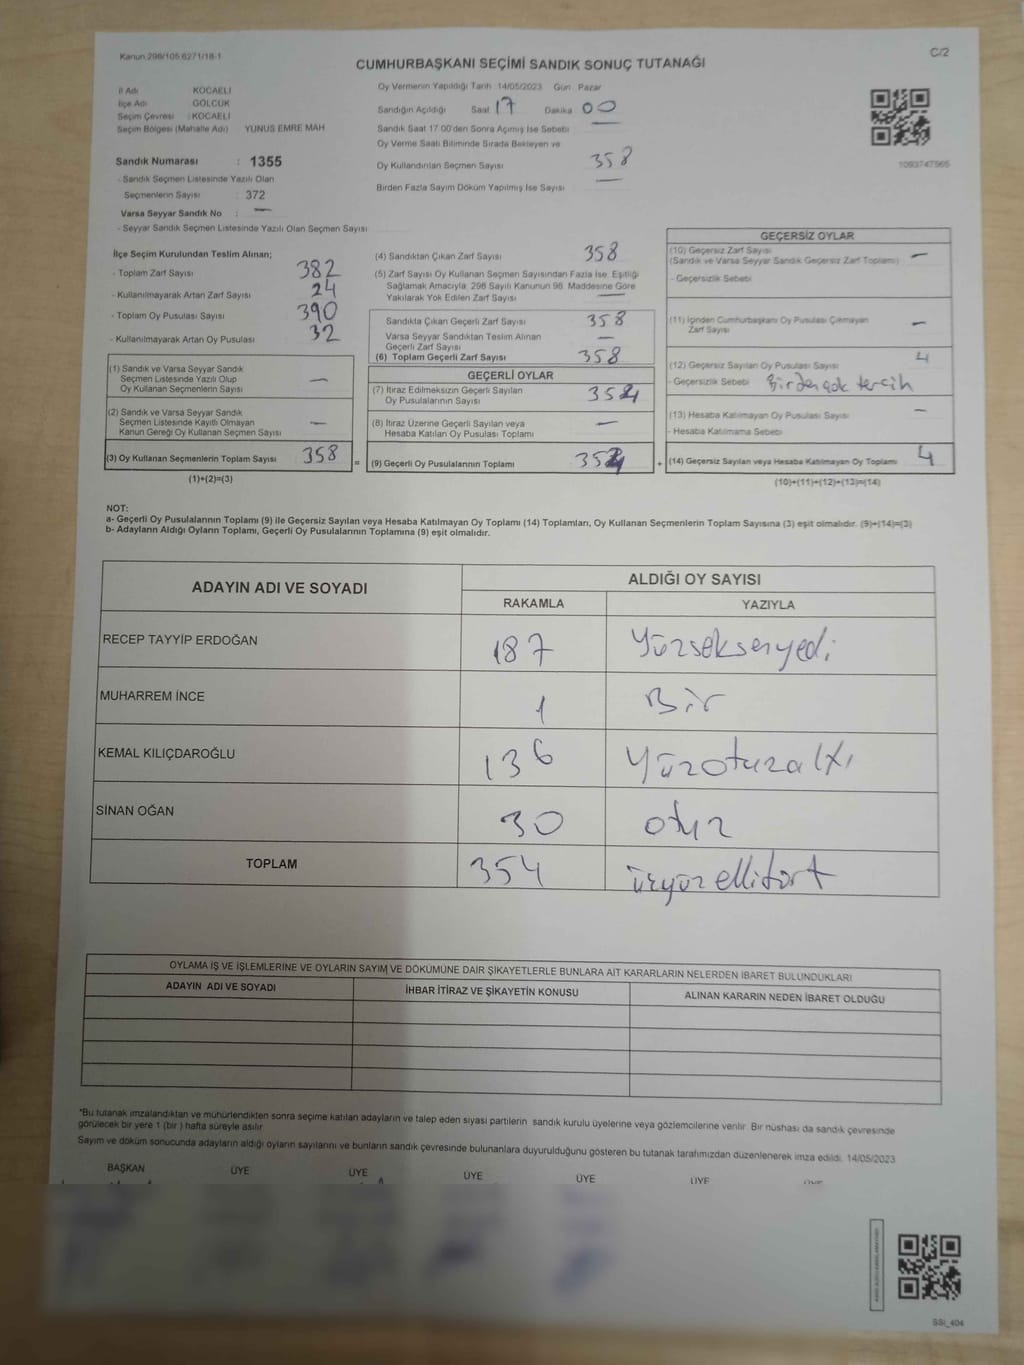 Kanun 298/105 6271/18-1
C/2
CUMHURBAŞKANI SEÇİMİ SANDIK SONUÇ TUTANAĞI
İl Adı KOCAELİ
İlçe Adı GÖLCÜK
Seçim Çevresi : KOCAELİ
Seçim Bölgesi (Mahalle Adı) YUNUS EMRE MAH
Sandık Numarası : 1355
- Sandık Seçmen Listesinde Yazılı Olan
Seçmenlerin Sayısı : 372
Varsa Seyyar Sandık No : —
- Seyyar Sandık Seçmen Listesinde Yazılı Olan Seçmen Sayısı
Oy Vermenin Yapıldığı Tarih 14/05/2023 Gün : Pazar
Sandığın Açıldığı Saat 17 Dakika 00
Sandık Saat 17 00'den Sonra Açılmış İse Sebebi —
Oy Verme Saati Bitiminde Sırada Bekleyen ve
Oy Kullandırılan Seçmen Sayısı 358
Birden Fazla Sayım Döküm Yapılmış İse Sayısı —
1093747565
İlçe Seçim Kurulundan Teslim Alınan;
- Toplam Zarf Sayısı 382
- Kullanılmayarak Artan Zarf Sayısı 24
- Toplam Oy Pusulası Sayısı 390
- Kullanılmayarak Artan Oy Pusulası 32
(1) Sandık ve Varsa Seyyar Sandık
Seçmen Listesinde Yazılı Olup
Oy Kullanan Seçmenlerin Sayısı —
(2) Sandık ve Varsa Seyyar Sandık
Seçmen Listesinde Kayıtlı Olmayan
Kanun Gereği Oy Kullanan Seçmen Sayısı —
(3) Oy Kullanan Seçmenlerin Toplam Sayısı 358
(1)+(2)=(3)
(4) Sandıktan Çıkan Zarf Sayısı 358
(5) Zarf Sayısı Oy Kullanan Seçmen Sayısından Fazla İse, Eşitliği
Sağlamak Amacıyla, 298 Sayılı Kanunun 98. Maddesine Göre
Yakılarak Yok Edilen Zarf Sayısı —
Sandıkta Çıkan Geçerli Zarf Sayısı 358
Varsa Seyyar Sandıktan Teslim Alınan
Geçerli Zarf Sayısı —
(6) Toplam Geçerli Zarf Sayısı 358
GEÇERLİ OYLAR
(7) İtiraz Edilmeksizin Geçerli Sayılan
Oy Pusulalarının Sayısı 354
(8) İtiraz Üzerine Geçerli Sayılan veya
Hesaba Katılan Oy Pusulası Toplamı —
= (9) Geçerli Oy Pusulalarının Toplamı 354
GEÇERSİZ OYLAR
(10) Geçersiz Zarf Sayısı
(Sandık ve Varsa Seyyar Sandık Geçersiz Zarf Toplamı) —
- Geçersizlik Sebebi
(11) İçinden Cumhurbaşkanı Oy Pusulası Çıkmayan
Zarf Sayısı —
(12) Geçersiz Sayılan Oy Pusulası Sayısı 4
- Geçersizlik Sebebi Birden çok tercih
(13) Hesaba Katılmayan Oy Pusulası Sayısı —
- Hesaba Katılmama Sebebi
+ (14) Geçersiz Sayılan veya Hesaba Katılmayan Oy Toplamı 4
(10)+(11)+(12)+(13)=(14)
NOT:
a- Geçerli Oy Pusulalarının Toplamı (9) ile Geçersiz Sayılan veya Hesaba Katılmayan Oy Toplamı (14) Toplamları, Oy Kullanan Seçmenlerin Toplam Sayısına (3) eşit olmalıdır. (9)+(14)=(3)
b- Adayların Aldığı Oyların Toplamı, Geçerli Oy Pusulalarının Toplamına (9) eşit olmalıdır.
ADAYIN ADI VE SOYADI ALDIĞI OY SAYISI
RAKAMLA YAZIYLA
RECEP TAYYİP ERDOĞAN 187 Yüzseksenyedi
MUHARREM İNCE 1 Bir
KEMAL KILIÇDAROĞLU 136 Yüzotuzaltı
SİNAN OĞAN 30 otuz
TOPLAM 354 üçyüzellidört
OYLAMA İŞ VE İŞLEMLERİNE VE OYLARIN SAYIM VE DÖKÜMÜNE DAİR ŞİKAYETLERLE BUNLARA AİT KARARLARIN NELERDEN İBARET BULUNDUKLARI
ADAYIN ADI VE SOYADI İHBAR İTİRAZ VE ŞİKAYETİN KONUSU ALINAN KARARIN NEDEN İBARET OLDUĞU
*Bu tutanak imzalandıktan ve mühürlendikten sonra seçime katılan adayların ve talep eden siyasi partilerin sandık kurulu üyelerine veya gözlemcilerine verilir. Bir nüshası da sandık çevresinde
görülecek bir yere 1 (bir ) hafta süreyle asılır
Sayım ve döküm sonucunda adayların aldığı oyların sayılarını ve bunların sandık çevresinde bulunanlara duyurulduğunu gösteren bu tutanak tarafımızdan düzenlenerek imza edildi. 14/05/2023
BAŞKAN ÜYE ÜYE ÜYE ÜYE ÜYE ÜYE
SSİ_404